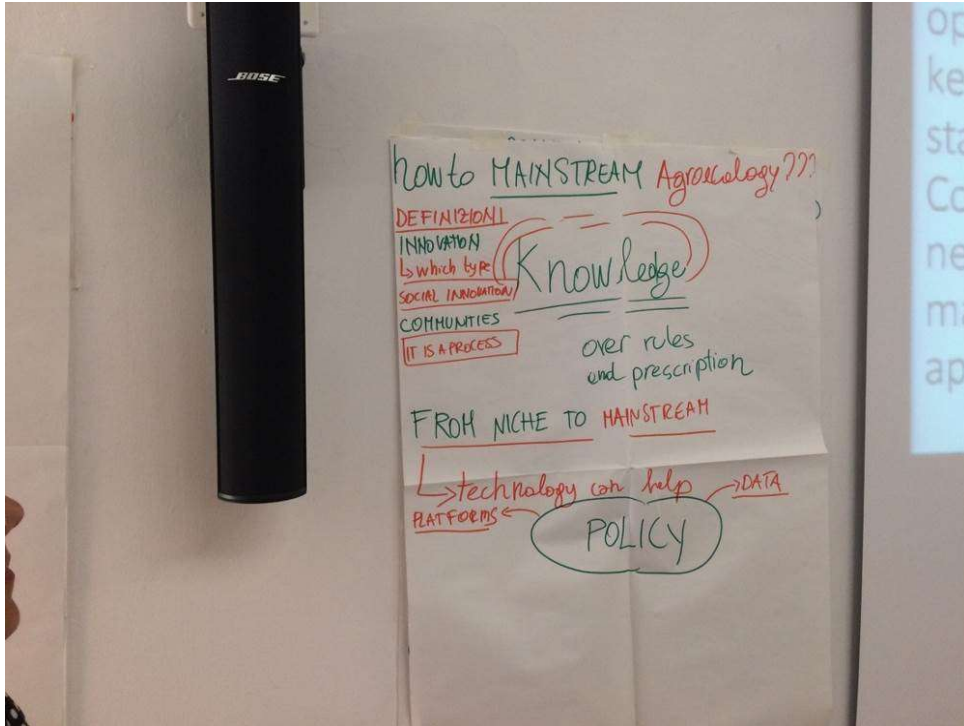 BOSE
how to MAINSTREAM Agroecology???
DEFINIZIONI
INNOVATION
↳ which type
SOCIAL INNOVATION
COMMUNITIES
IT IS A PROCESS
Knowledge
over rules
and prescription
FROM NICHE TO MAINSTREAM
↳ technology can help
PLATFORMS
DATA
POLICY
op
ke
sta
Co
ne
ma
ap